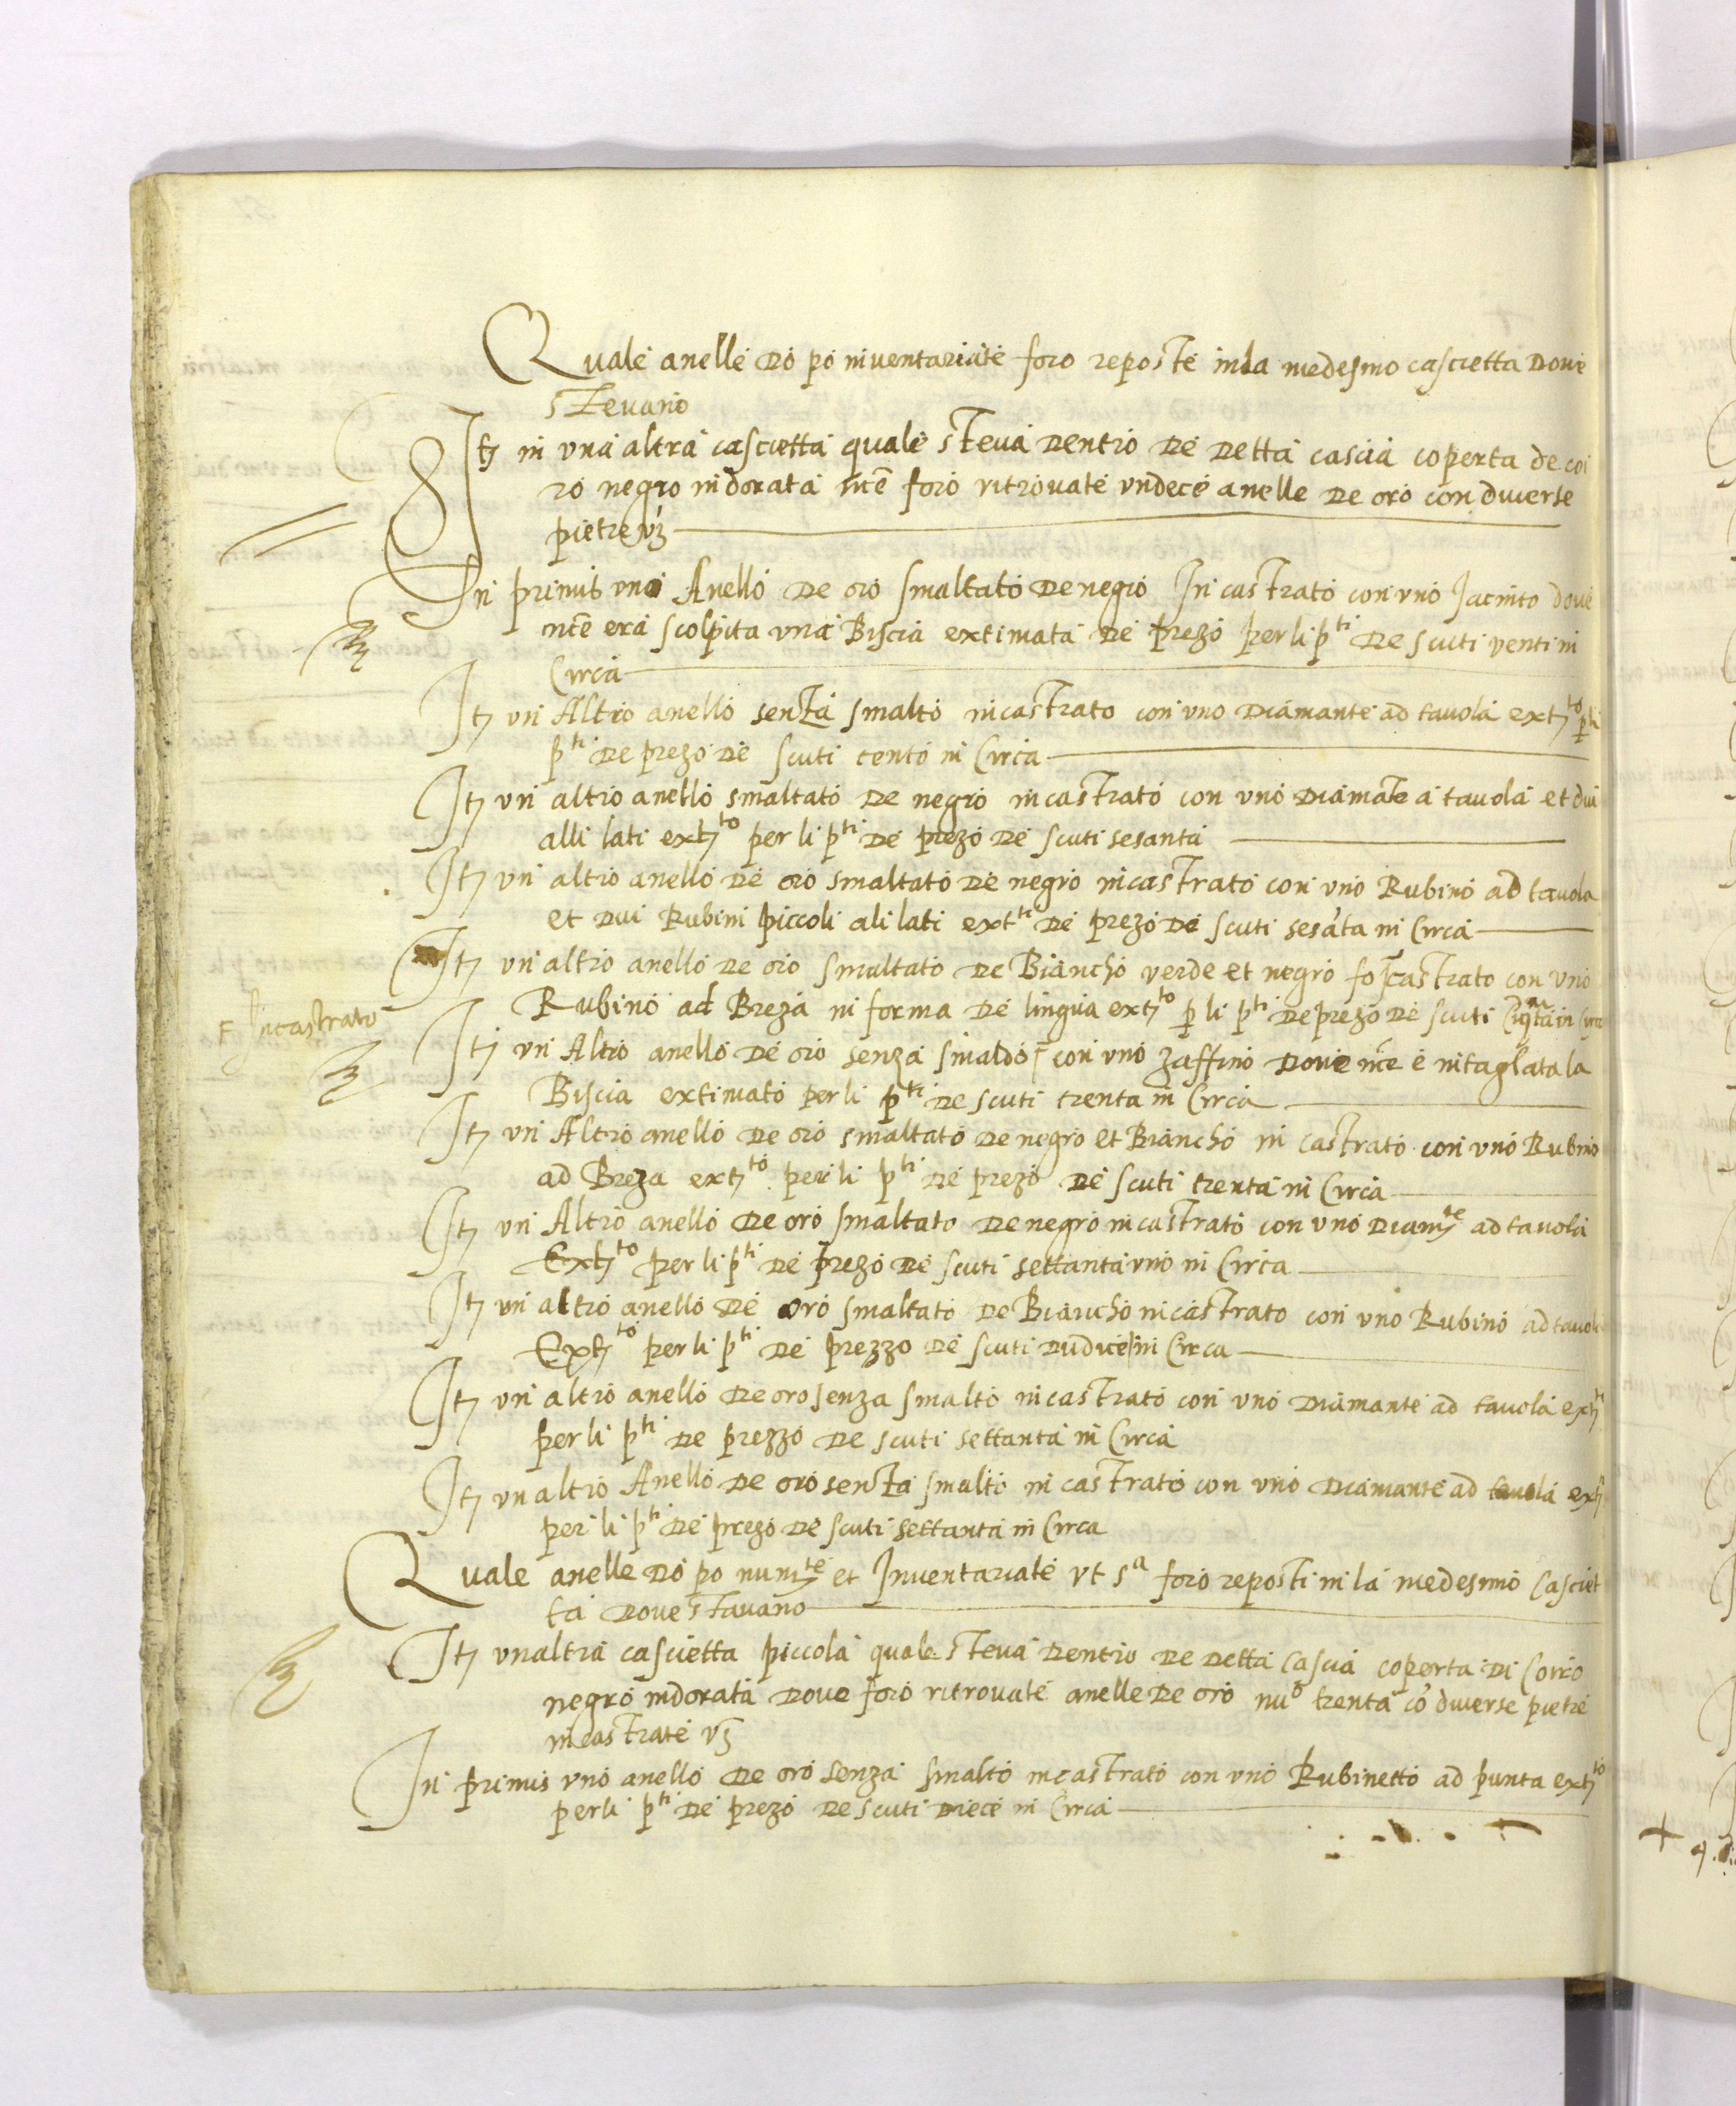 Quale anelle dopo inventariate foro reposte in la medesmo cascietta dove
stevano
Itʒ in una altra cascietta quale steva dentro de detta cascia coperta de coi
ro negro indorata ince foro ritrovate undece anelle de oro con diverse
pietre vʒ
In primis uno Anello de oro smaltato de negro Incastrato con uno Jacinto dove
nce era scolpita una Biscia extimata de prezo per li p^ti de scuti venti in
Circa
Itʒ un Altro anello senza smalto incastrato con uno Diamante ad tavola extʒ^to p li
p^ti de prezo de scuti cento in Circa
Itʒ un altro anello smaltato de negro incastrato con uno Diamāte a tavola et dui
alli lati extʒ^to per li p^ti de prezo de scuti sesanta
Itʒ un altro anello de oro smaltato de negro incastrato con uno Rubino ad tavola
et dui Rubini piccoli ali lati ext^ti de prezo de scuti sesāta in Circa
Itʒ un altro anello de oro smaltato de Biancho verde et negro castrato con uno
Rubino ad Breza in forma de lingua extʒ^to p li p^ti de prezo de scuti in Circa
F Incastrato
Itʒ un Altro anello de oro senza smaldo F con uno zaffino dove nce è intagliata la
Biscia extimato per li p^ti de scuti trenta in Circa
Itʒ un Altro anello de oro smaltato de negro et Biancho in castrato con uno Rubino
ad Breza extʒ^to per li p^ti de prezo de scuti trenta in Circa
Itʒ un Altro anello de oro smaltato de negro incastrato con uno Diamʒ^te ad tavola
Extʒ^to per li p^ti de prezo de scuti settanta uno in Circa
Itʒ un altro anello de oro smaltato de Biancho incastrato con uno Rubino ad tavola
Extʒ^to per li p^ti de prezzo de scuti dudice in Circa
Itʒ un altro anello de oro senza smalto incastrato con uno Diamante ad tavola extʒ^ti
per li p^ti de prezzo de scuti settanta in Circa
Itʒ un altro Anello de oro senza smalto in castrato con uno Diamante ad tavola extʒ
per li p^ti de prezo de scuti settanta in Circa
Quale anelle dopo numʒ^te et Inventariate ut s^a foro reposti in la medesimo Casciet
ta dove stavano
Itʒ un altra cascietta piccola quale steva dentro de detta Cascia coperta di Coiro
negro indorata dove foro ritrovate anelle de oro nu^o trenta cō diverse pietre
incastrate vʒ
In primis uno anello de oro senza smalto incastrato con uno Rubinetto ad punta extʒ^to
per li p^ti de prezo de scuti diece in Circa